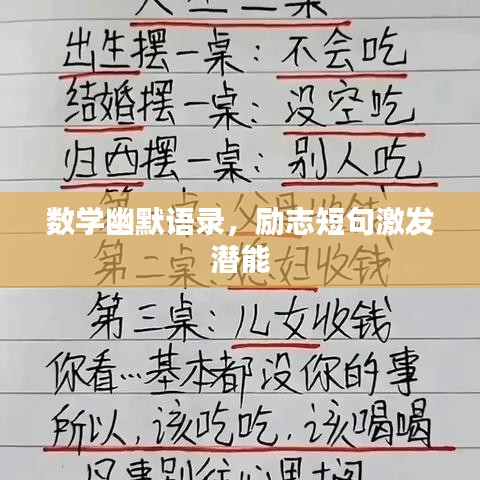 人生三桌
出生摆一桌：不会吃
结婚摆一桌：没空吃
归西摆一桌：别人吃
数学幽默语录，励志短句激发
潜能
第二桌：媳妇收钱
第三桌：儿女收钱
你看…基本都没你的事
所以，该吃吃，该喝喝